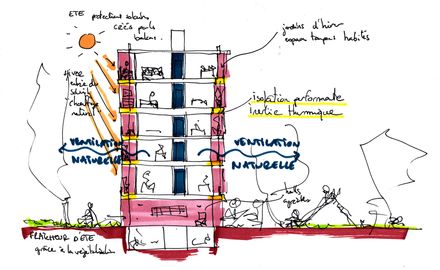 ETE protections solaires
créés par les
balcons
jardins d'hiver
espaces tampons habités
Hiver
entrée du
soleil
chauffage
naturel
isolation performante
inertie thermique
VENTILATION
NATURELLE
VENTILATION
NATURELLE
toits
FRAÎCHEUR D'ÉTÉ
grâce à la végétalisation